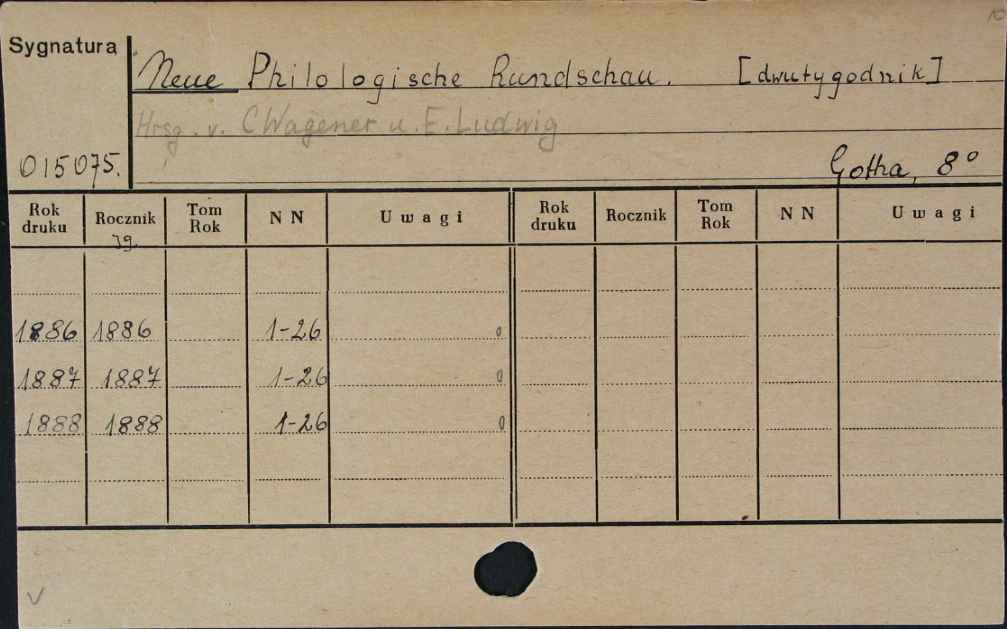 Sygnatura
Neue Philologische Rundschau. [dwutygodnik]
Hrsg. v. C Wagener u. E. Ludwig
015075.
Gotha, 8°
Rok druku Rocznik Tom Rok N N Uwagi Rok druku Rocznik Tom Rok N N Uwagi
Jg.
1886 1886 1-26 0
1887 1887 1-26 0
1888 1888 1-26 0